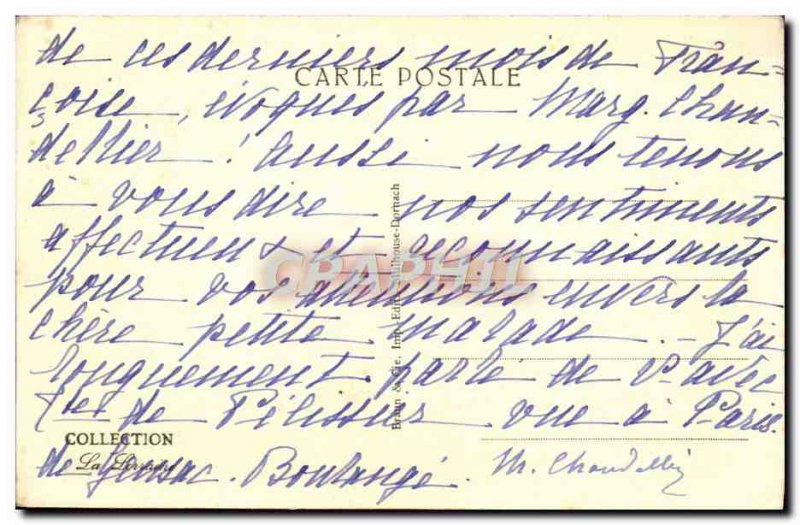 de ces derniers mois de Fran-
CARTE POSTALE
çoise, évoqués par Marg. Chan-
dellier! Aussi nous tenons
à vous dire nos sentiments
affectueux et reconnaissants
pour vos attentions envers la
chère petite malade. - J'ai
longuement parlé de vs avec
de Pélissier vue à Paris.
COLLECTION
de Boulangé.
Braun & Cie, Imp.-Edit., Mulhouse-Dornach
CPAPHIL